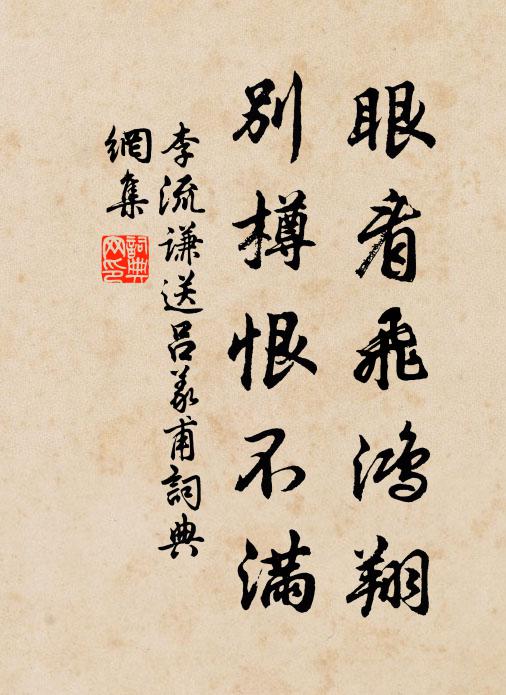 眼看飛鴻翔
别樽恨不滿
李流谦送吕義甫詞典
網集
詞典
网印